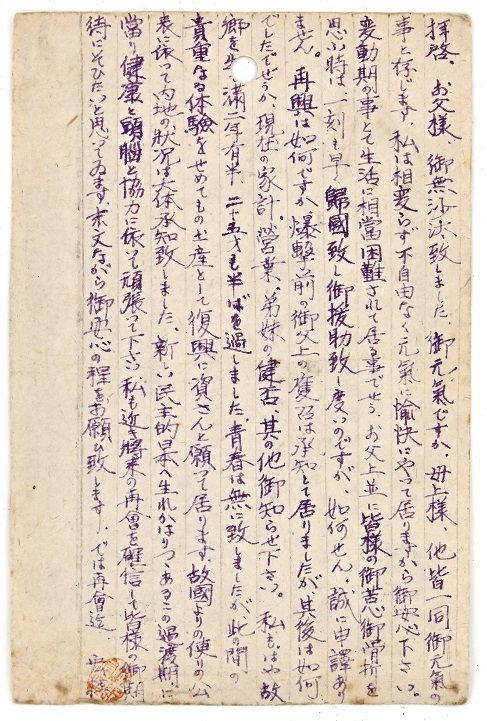 拝啓、お父様、御無沙汰致しました。御元氣ですか、母上様、他皆一同御元氣の
事と存じます。私は相変らず不自由なく元氣に愉快にやって居りますから御安心下さい。
変動期の事とて生活に相當困難されて居る事でせう。お父上並に皆様の御苦心御骨折を
思ふ時は一刻も早く歸國致し御援助致し度いのですが、如何せん、誠に申譯あり
ません。再興は如何ですか爆撃前の御父上の應召は承知して居りましたが、其後は如何
でしたでせうか、現在の家計、營業、弟妹の健否、其の他御知らせ下さい。私もはや故
郷を 満二年有半、二十五才も半ばを過しました。青春は無に致しましたが此の間の
貴重なる体験をせめてもの土産として復興に資さんと願って居ります。故國よりの便りの公
表に依って内地の狀況は大体承知致しました、新しい民主的日本へ生れかはりつゝあるこの過渡期に
當り健康と頭腦と協力に依って頑張って下さい。私も近き將来の再會を確信して皆様の御期
待にそひたいと思ってゐます。末文ながら御安心の程をお願ひ致します。では再會迄